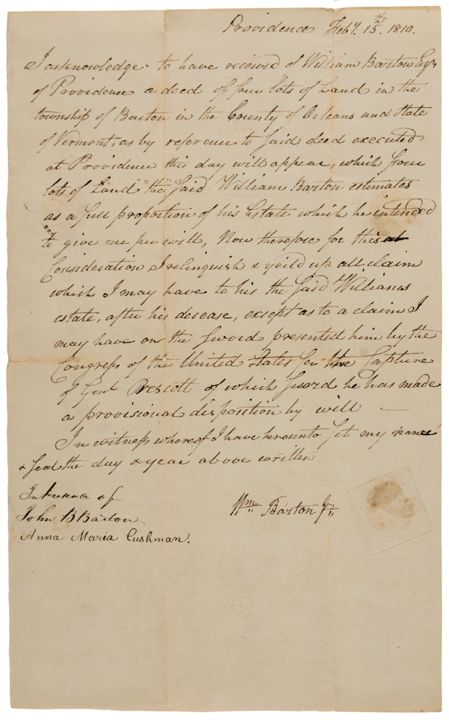 Providence Feby. 15th 1810.
I acknowledge to have received of William Barton Esqr
of Providence a deed of four lots of Land in the
township of Barton in the County of Orleans and State
of Vermont, as by reference to said deed executed
at Providence this day will appear which four
lots of Land the said William Barton estimates
as a full proportion of his Estate which he intended
to give me per will, Now therefore for this
Consideration I relinquish & yeild up all claim
which I may have to his the said Williams
estate, after his decease, except as to a claim I
may have on the sword presented him by the
Congress of the United States for the Capture
of Genl Prescott of which sword he has made
a provisional disposition by will —
In witness whereof I have hereunto set my name
& seal the day & year above written
In presence of
John B Barton
Wm Barton Jr
Anna Maria Cushman.